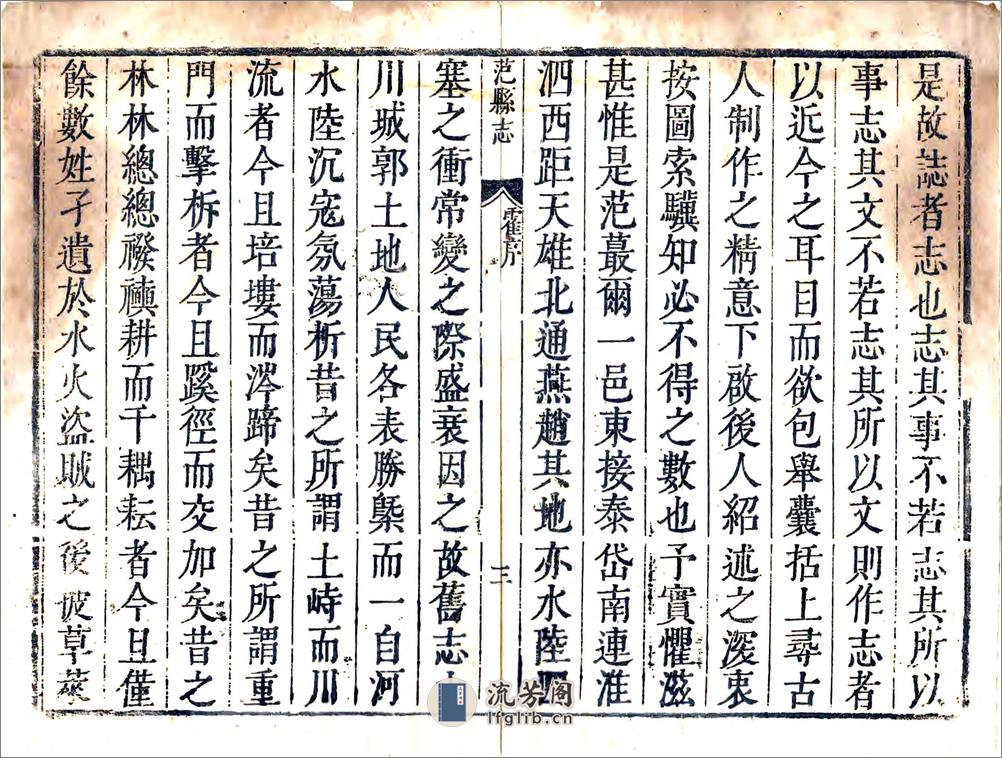 是故誌者志也志其事不若志其所以
事志其文不若志其所以文則作志者
以近今之耳目而欲包舉囊括上尋古
人制作之精意下啟後人紹述之深衷
按圖索驥知必不得之數也予實懼滋
甚惟是范蕞爾一邑東接泰岱南連淮
泗西距天雄北通燕趙其地亦水陸
范縣志
霍序
二
塞之衝常變之際盛衰因之故舊志
川城郭土地人民各表勝槩而一自河
水陸沉寇氛蕩析昔之所謂土峙而川
流者今且培塿而涔蹄矣昔之所謂重
門而擊柝者今且蹊徑而交加矣昔之
林林總總襏襫耕而千耦耘者今且僅
餘數姓孑遺於水火盜賊之後披草萊
流芳阁
lfglib.cn